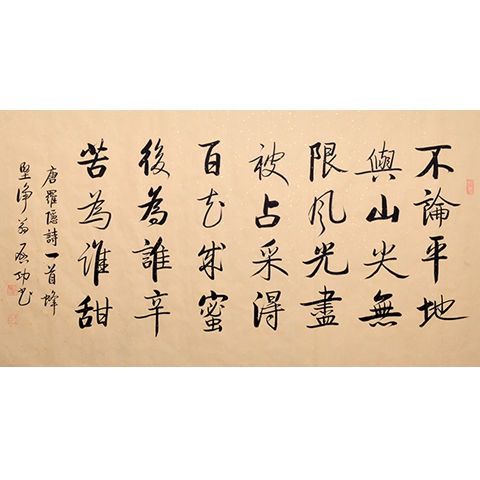 不論平地
與山尖無
限風光盡
被占采得
百花成蜜
後為誰辛
苦為誰甜
唐羅隱詩一首蜂
堅淨翁啟功書